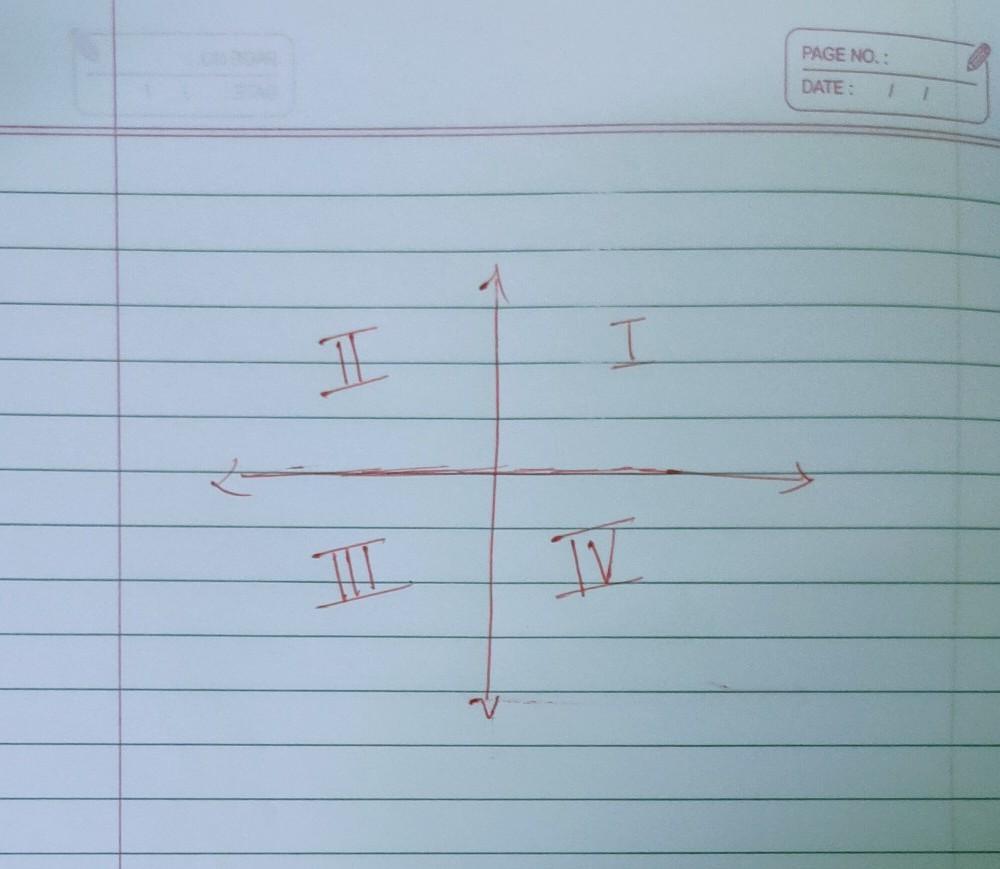 PAGE NO. :
DATE : / /
II I
III IV